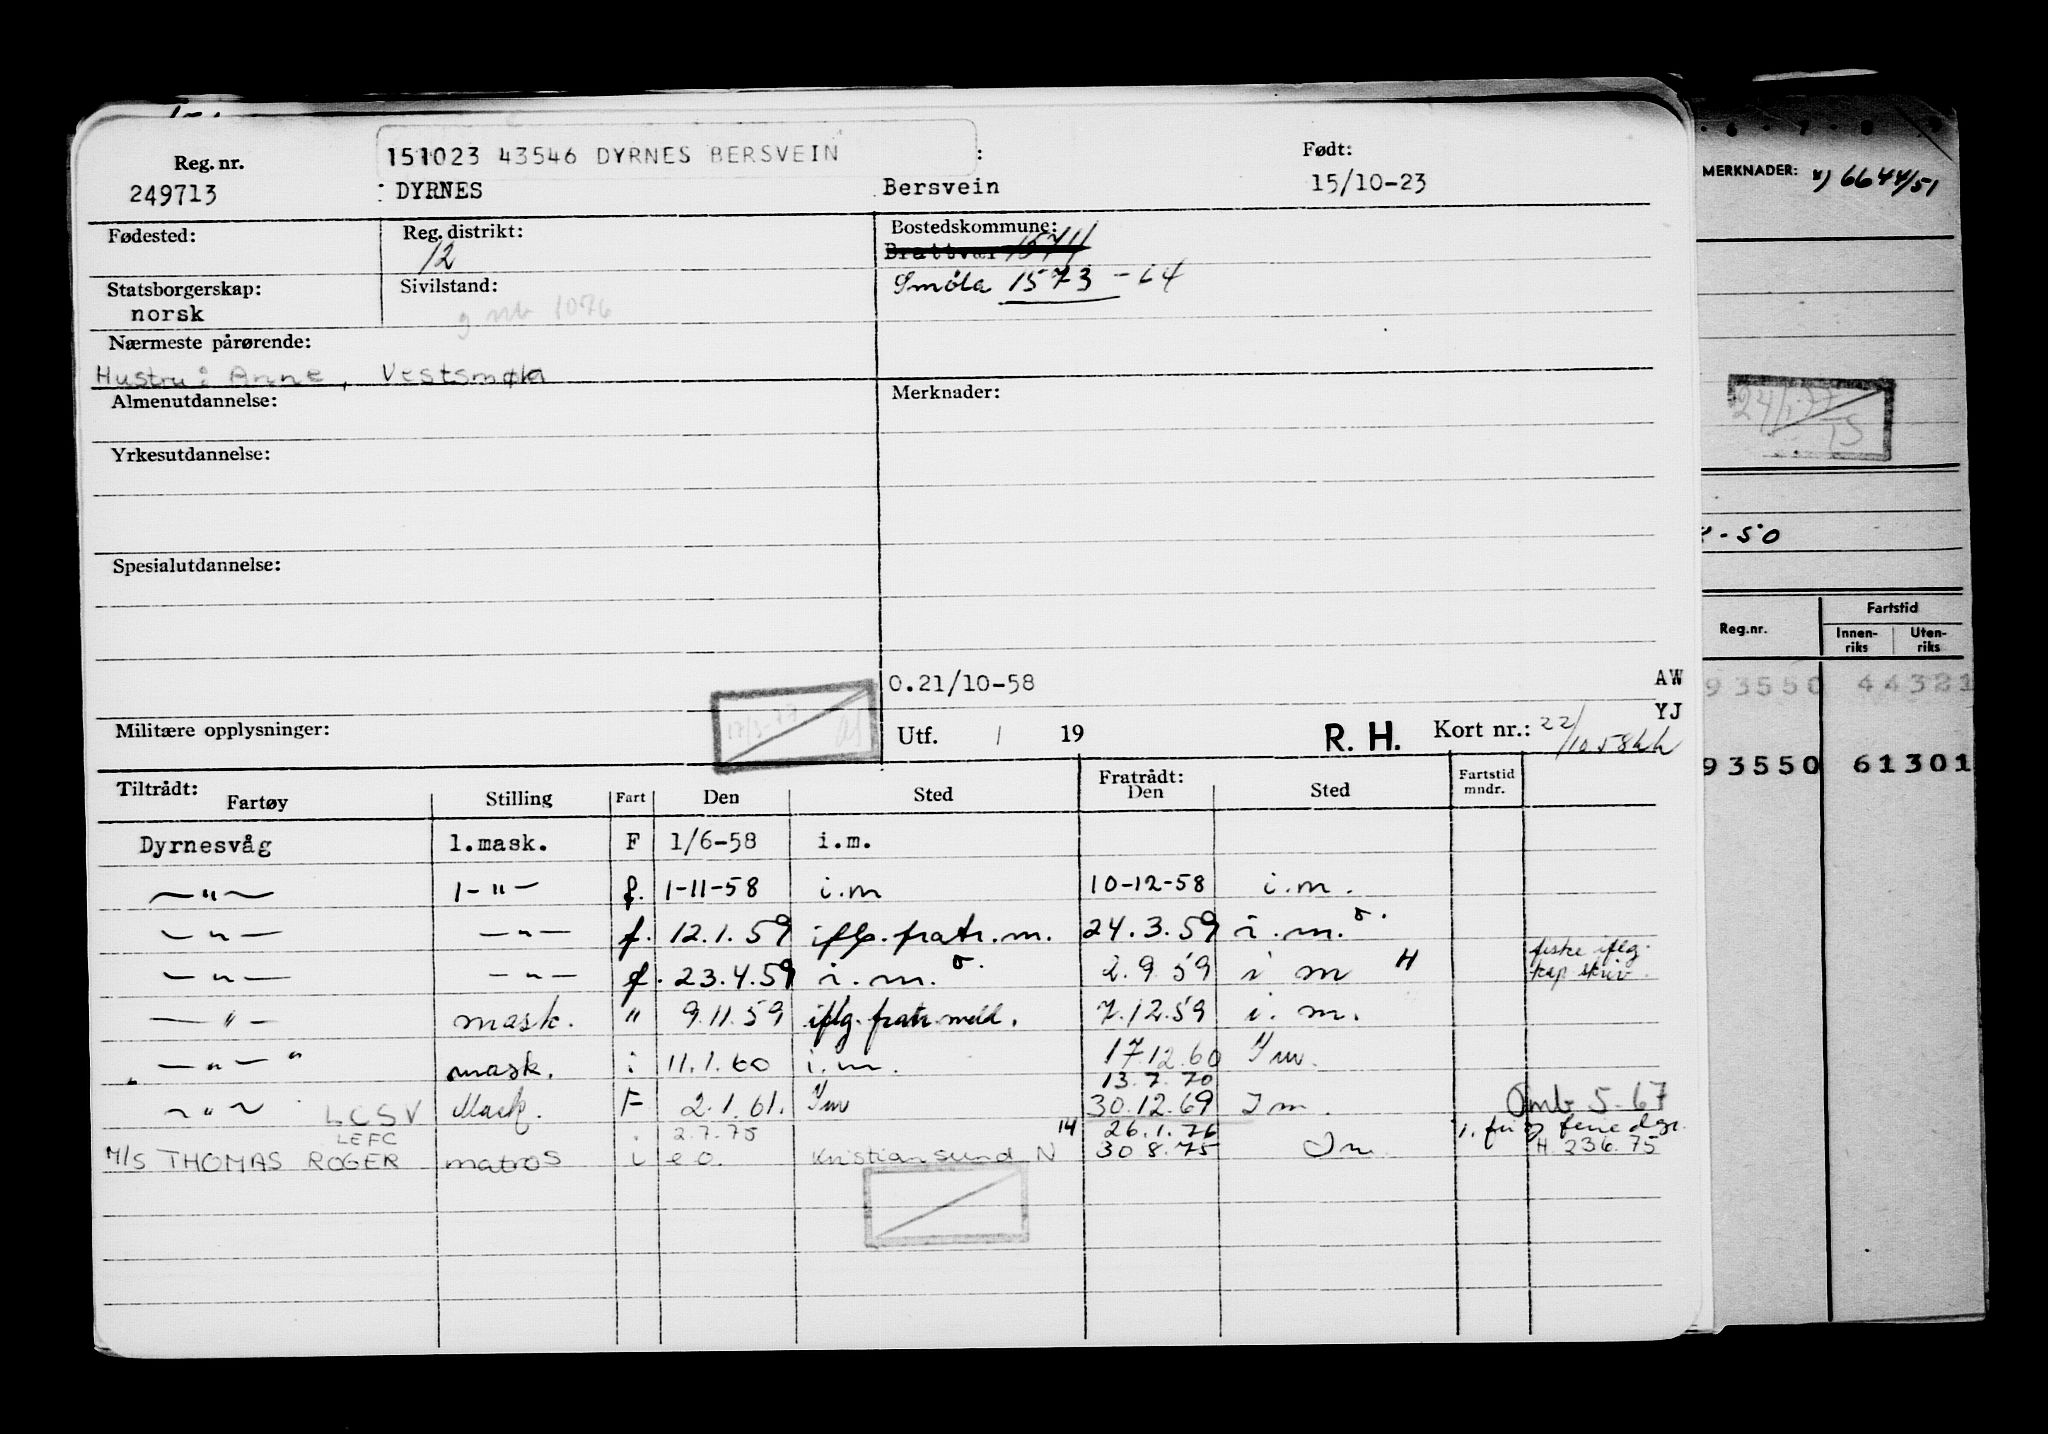 151023 43546 DYRNES BERSVEIN
Reg. nr. : Født:
249713 : DYRNES Bersvein 15/10-23
Fødested: Reg. distrikt: Bostedskommune:
12 Brattvær 1571
Statsborgerskap: Sivilstand: Smøla 1573 - 64
norsk g mb 1076
Nærmeste pårørende:
Hustru: Anne, Vestsmøla
Almenutdannelse: Merknader:
Yrkesutdannelse:
Spesialutdannelse:
0.21/10-58 AW
YJ
Militære opplysninger: Utf. / 19 R. H. Kort nr.: 22/10 58
Tiltrådt: Fratrådt: Fartstid mndr.
Fartøy Stilling Fart Den Sted Den Sted
Dyrnesvåg 1.mask. F 1/6-58 i.m.
—"— 1-"- f. 1-11-58 i.m 10-12-58 i.m.
—"— —"— f. 12.1.59 iflg. fratr.m. 24.3.59 i.m.
—"— —"— f. 23.4.59 i.m. 2.9.59 i m H fiske iflg.
kap skriv.
—"— mask. " 9.11.59 iflg. fratr. meld. 7.12.59 i.m.
—"— " mask. i 11.1.60 i.m. 17.12.60 Im.
13.7.70
—"— LCSV Mask. F 2.1.61. Im 30.12.69 Im. Omb 5-67
LEFC i 2.7.75 14 26.1.76
M/S THOMAS ROGER matros i e.o. Kristiansund N 30 8.75 Im H 236.75
MERKNADER: 6644/51
24/1.77
- 50
Reg.nr. Fartstid
Innen-riks Uten-riks
93550 44321
93550 61301